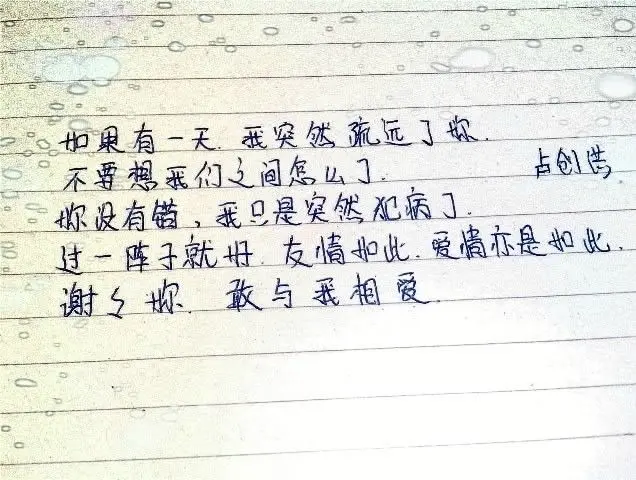 如果有一天.我突然疏远了你.
不要想我们之间怎么了.
占创浩
你没有错、我只是突然犯病了.
过一阵子就好.友情如此.爱情亦是如此.
谢々你.敢与我相爱.